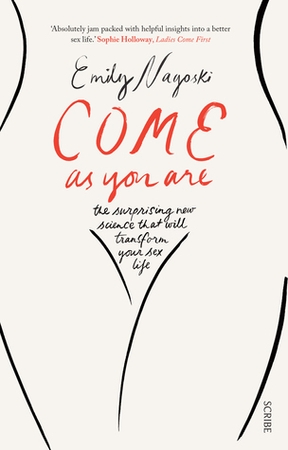 'Absolutely jam packed with helpful insights into a better
sex life.' Sophie Holloway, Ladies Come First
Emily Nagoski
COME
as you are
the surprising new
science that will
transform
your sex
life
SCRIBE